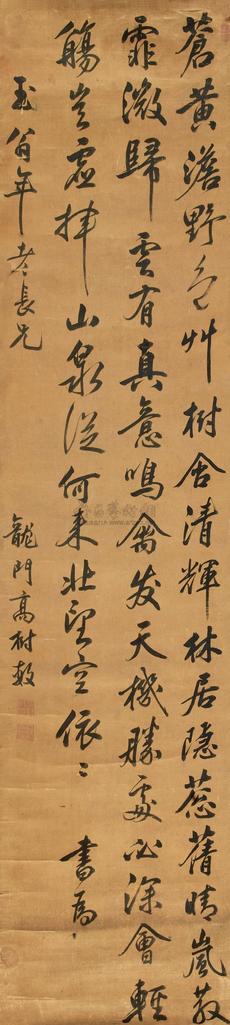 蒼黃澹野色艸樹含清輝林居隱蔥蒨晴嵐散
霏微歸雲有真意鳴禽发天機勝處必深會輕
觴豈虛揮山泉從何來壯望空依〻 書為
玉翁年老長兄
龍門高樹